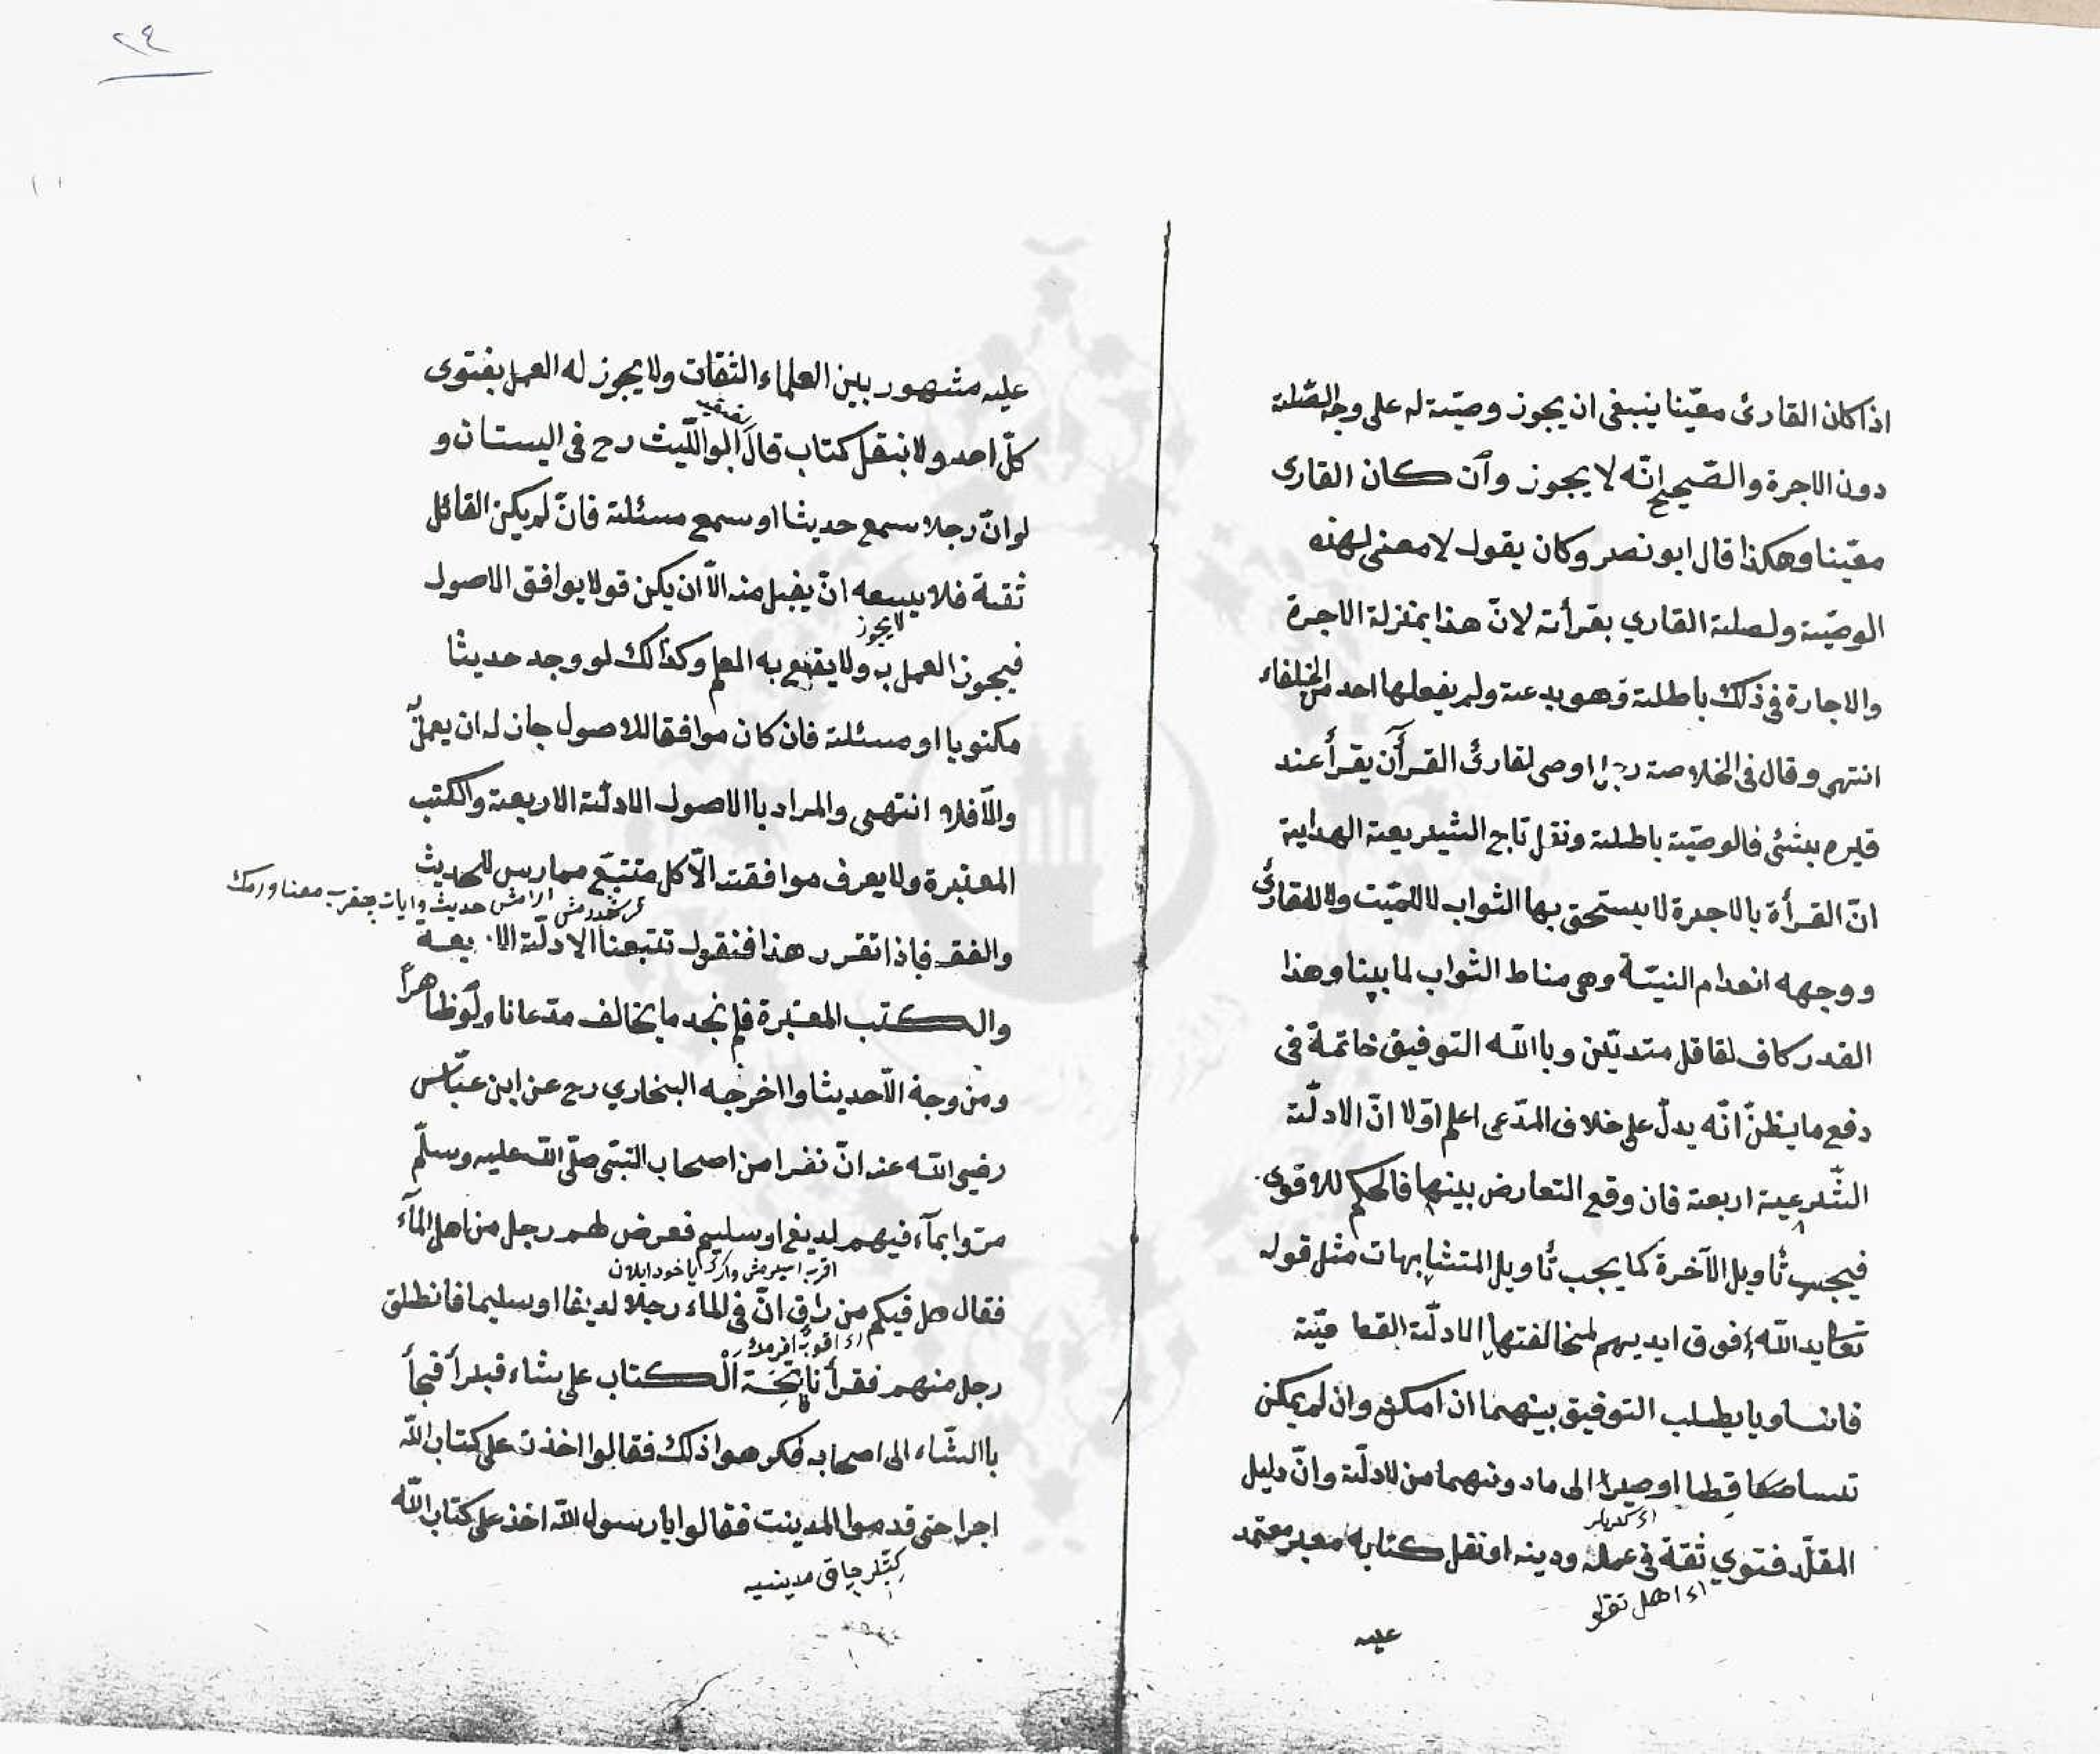 ٢٤
اذا كان القارئ معيّنا ينبغى ان يجوز وصيّة له على وجه الصّلة
دون الاجرة والصّحيح انّه لا يجوز وان كان القارى
معيّنا وهكذا قال ابو نصر وكان يقول لا معنى لهذه
الوصيّة ولصلة القاري بقرأته لانّ هذا بمنزلة الاجرة
والاجارة فى ذلك باطلة وهو بدعة ولم يفعلها احد من الخلفاء
انتهى وقال فى الخلاصة رجل اوصى لقارئ القرأن يقرأ عند
قبره بشئ فالوصيّة باطلة ونقل تاج الشيريعة الهداية
انّ القرأة بالاجرة لا يستحق بها الثواب لا للميّت ولا للقارئ
ووجهه انعدام النيّة وهى مناط الثواب لما بينا وهذا
القدر كاف لقاقل متديّن وباالله التوفيق خاتمة فى
دفع ما يظنّ انّه يدلّ على خلاف المدّعى اعلم اوّلا انّ الادلّة
الشّرعية اربعة فان وقع التعارض بينها فالحكم للاقوى
فيجب تأويل الآخرة كما يجب تأويل المتشابهات مثل قوله
تعا يد الله فوق ايديهم لمخالفتها الادلّة القطعيّة
فان تساويا يطلب التوفيق بينهما ان امكن وان لم يمكن
تساقطا اوصيرا الى ما دونهما من لادلّة وانّ دليل
المقلّد فتوي ثقة فى عمله ودينه او نقل كتابه معبر معتمد
اى اهل تقولر
عليه
عليه مشهور بين العلماء الثقات ولا يجوز له العمل بفتوى
كلّ احد ولا بنقل كتاب قال ابو اللّيث رح فى البستان و
لو انّ رجلا سمع حديثا او سمع مسئلة فانّ لم يكن القائل
ثقة فلا يسعه انّ يقبل منه الّا ان يكن قولا يوافق الاصول
لا يجوز
فيجوز العمل به ولا يقع به العلم وكذالك لو وجد حديثا
مكتوبا او مسئلة فان كان موافقا للاصول جاز له ان يعمل به
والّا فلا انتهى والمراد باالاصول الادلّة الاربعة والكتب
المعتبرة ولا يعرف موافقته الّا كل متتبّع ممارس للحديث
والفقه فاذا تقرر هذا فنقول تتبعنا الادلّة الاربعة
والكتب المعتبرة فلم نجد ما يخالف مدّعانا ولو ظاهراً
ومن وجه الّا حديثا وااخرجه البخاري رح عن ابن عبّاس
رضي الله عنه انّ نفرا من اصحاب النبّى صلّى الله عليه وسلّم
مرّوا بمآء فيهم لديغ او سليم فعرض لهم رجل من اهل المآء
فقال هل فيكم من راق انّ فى الماء رجلا لديغا او سليما فانطلق
رجل منهم فقرأ فاتحة الكتاب على شاء فبرأ فجأ
باالشّاء الى اصحابه فكرهوا ذلك فقالوا اخذت على كتاب الله
اجرا حتى قدموا المدينت فقالوا يا رسول الله اخذ على كتاب الله